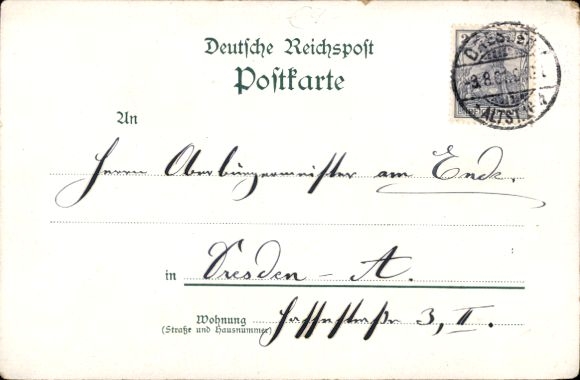 Deutsche Reichspost
Postkarte
DRESDEN
ALTST.
An
Herrn Oberbürgermeister am Ende.
in Dresden - A.
Wohnung
(Straße und Hausnummer)
3, II.